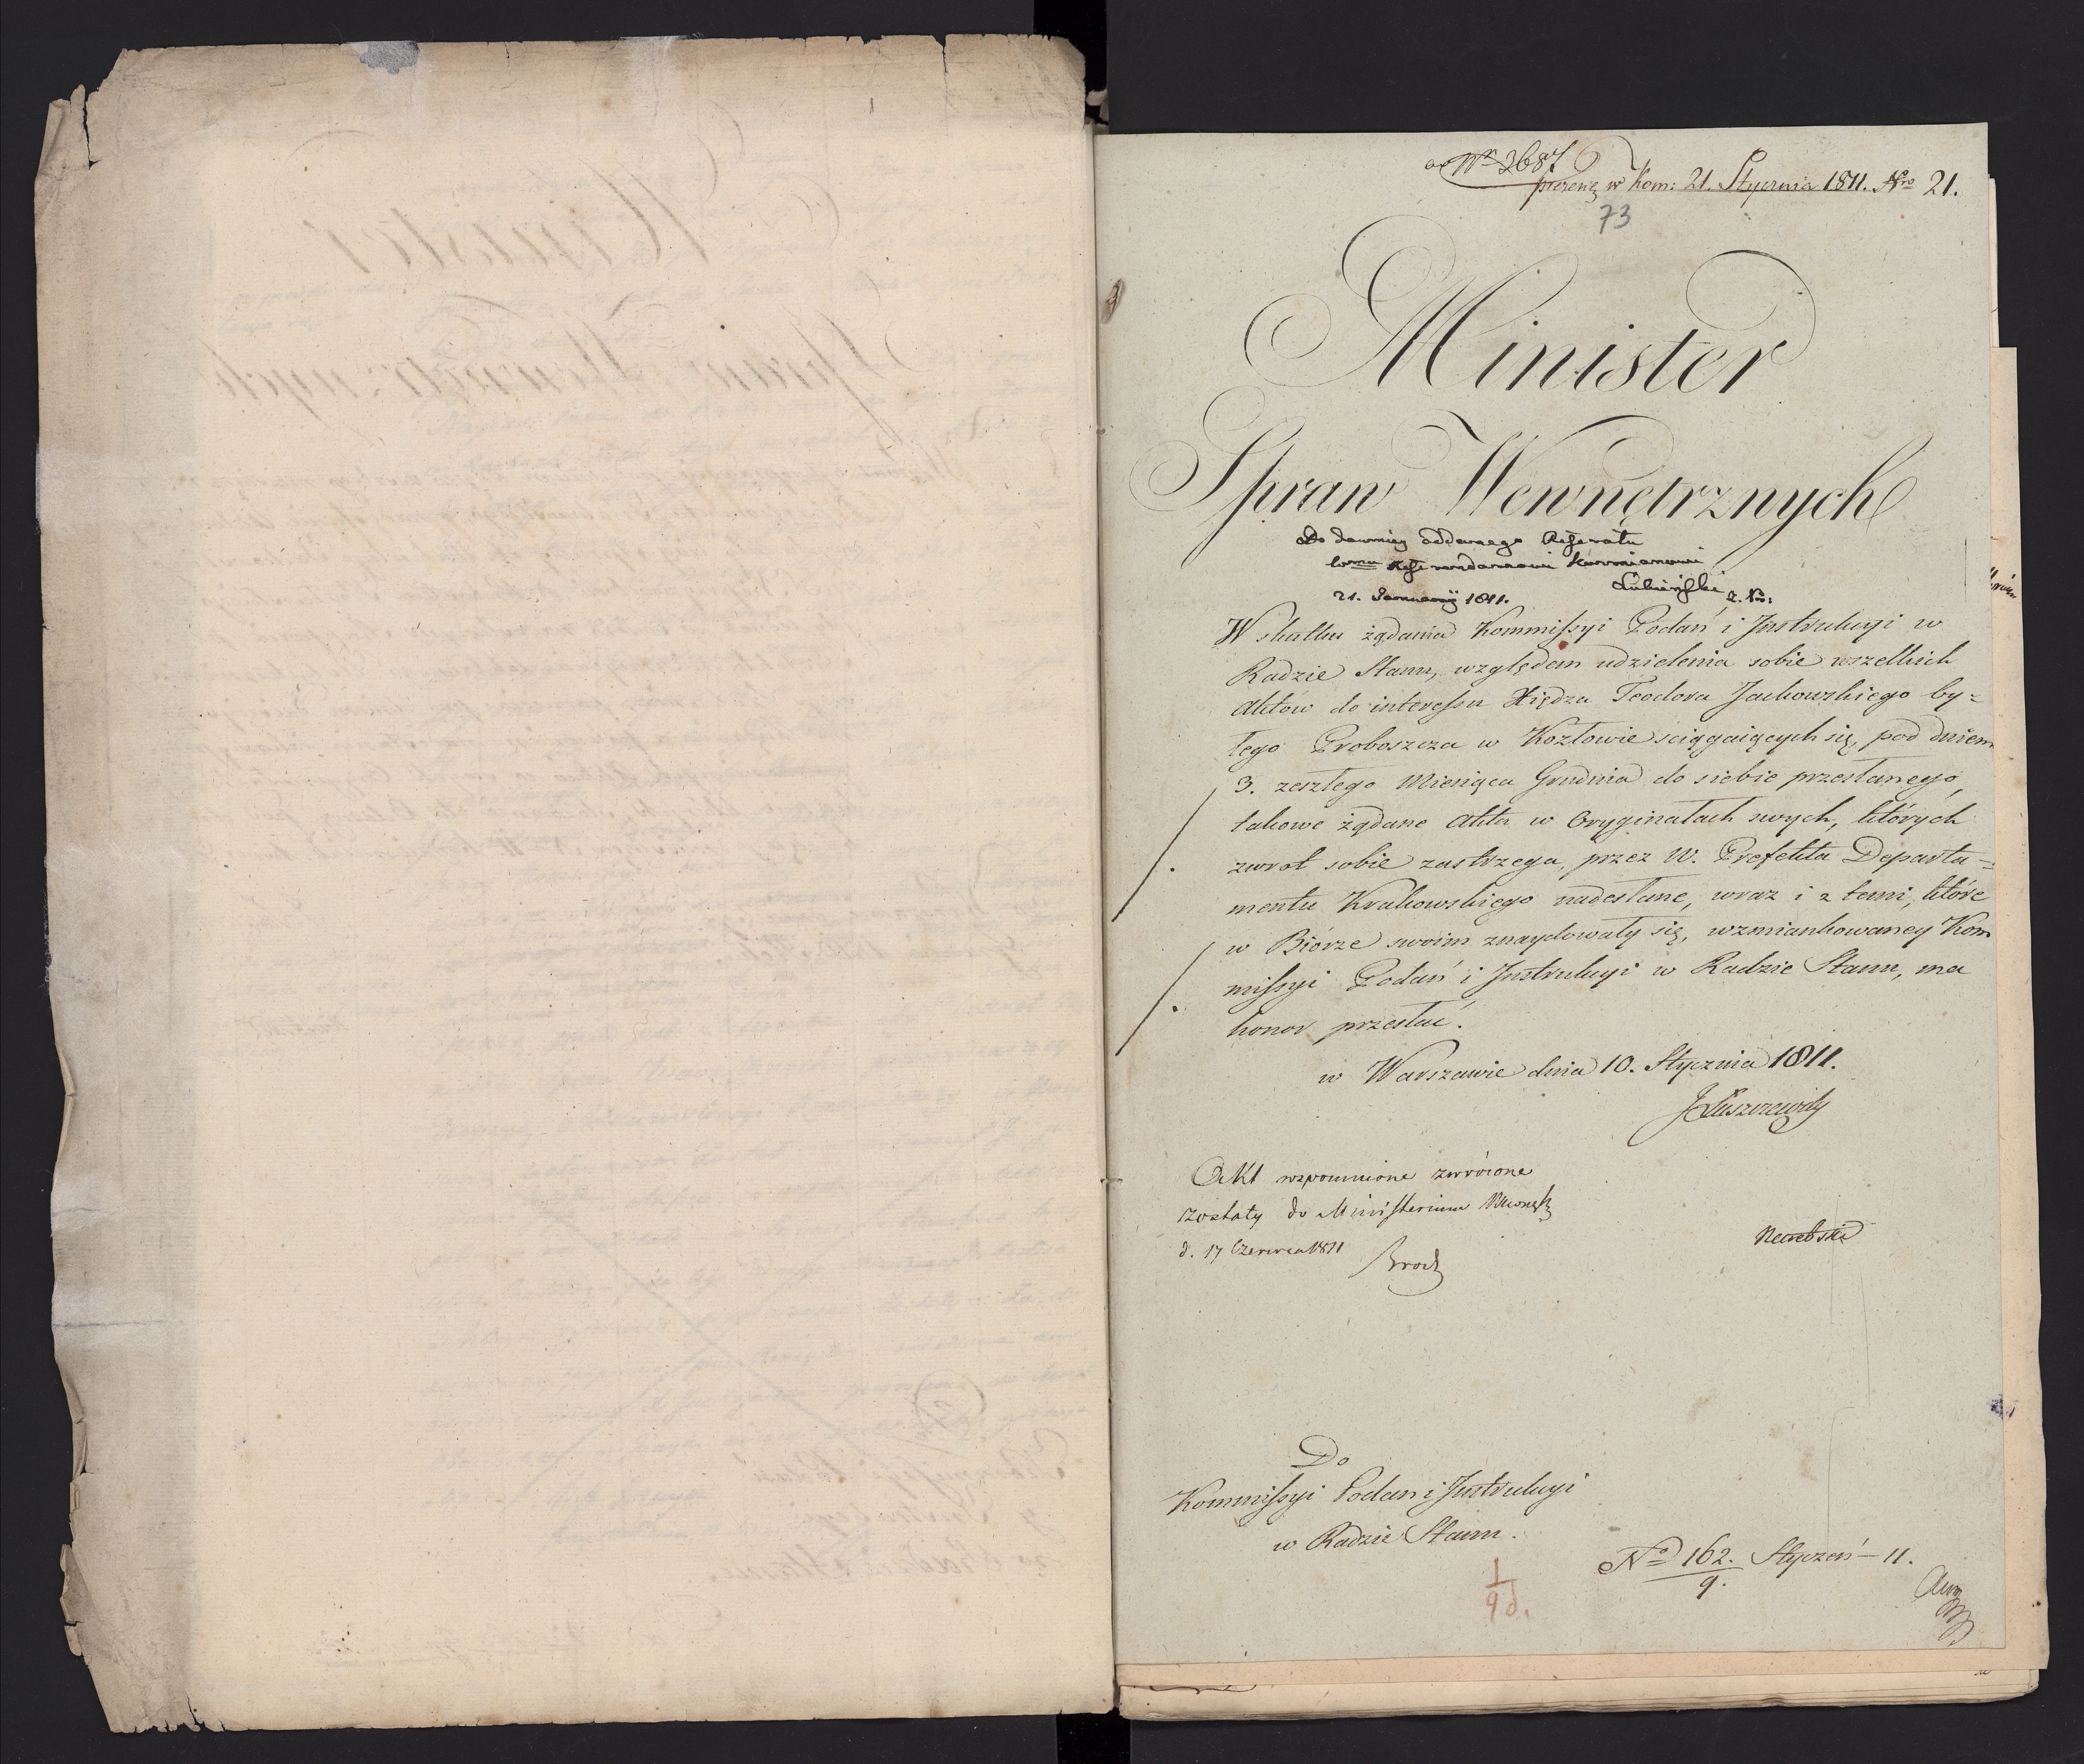 ad Nr 2687
prezent: w Kom: 21. Stycznia 1811. Nro 21.
73
Minister
Spraw Wewnętrznych
Do dawniey oddanego Referatu
Referendarzowi Koźmianowi
21. January 1811. Łubieński
W skutku żądania Kommissyi Podań i Instrukcyi w
Radzie Stanu, względem udzielenia sobie wszelkich
Aktów do interessu Xiędza Teodora Jackowskiego by=
łego Proboszcza w Kozłowie sciągaiących się, pod dniem
3. zeszłego Miesiąca Grudnia do siebie przesłanego,
takowe żądane Akta w Oryginałach swych, których
zwrot sobie zastrzega, przez W. Prefekta Departa=
mentu Krakowskiego nadesłane, wraz i z temi, które
w Biórze swoim znaydowały się, wzmiankowaney Kom
missyi Podań i Instrukcyi w Radzie Stanu, ma
honor przesłać.
w Warszawie dnia 10. Stycznia 1811.
J Łuszczewski
Akt wspomnione zwrócone
zostały do Ministerium Wewnętr
d. 17 Czerwca 1811
Do
Kommissyi Podan i Instrukcyi
w Radzie Stanu.
No 162. Styczeń – 11.
9.
1
9 d.